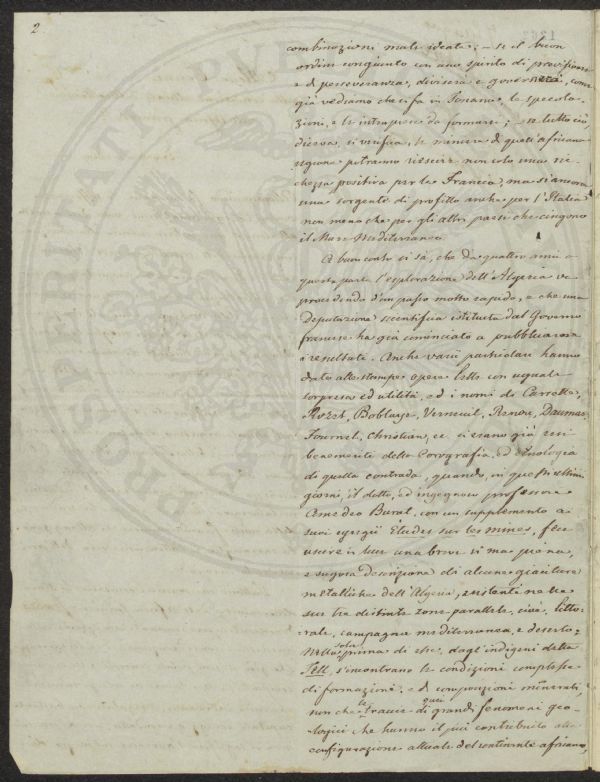 2
combinazioni male ideate; – se il buon
ordine congiunto con uno spirito di previsione
e di perseveranza, diviserà e governerà, come
già vediamo che si fa in Toscana, le specola-
zioni, e le intraprese da formarsi; – se tutto ciò,
dicevasi, si verifica, le miniere di quell'africana
regione potranno riescire non solo una ric-
chezza positiva per la Francia, ma sì ancora
una sorgente di profitto anche per l'Italia
non meno che per gli altri paesi che cingono
il Mare Mediterraneo.
A buon conto si sa, che da quattro anni a
questa parte l'esplorazione dell'Algeria va
procedendo d'un passo molto rapido, e che una
Deputazione scientifica istituita dal Governo
francese ha già cominciato a pubblicarne
i resultati. Anche varii particolari hanno
dato alle stampe opere lette con uguale
sorpresa ed utilità, ed i nomi di Carrette,
Rozet, Boblaye, Verneuil, Renou, Daumas,
Fournel, Christian, ec. si erano già resi
benemeriti della Corografia, ed Etnologia
di quella contrada, quando, in questi ultimi
giorni, il dotto, ed ingegnoso professore
Amedeo Burat, con un supplemento a
suoi egregii Études sur les mines, fece
uscire in luce una breve sì ma piena,
e sugosa descrizione di alcune giaciture
metalliche dell'Algeria, esistenti nelle
sue tre distinte zone parallele, cioè, litto-
rale, campagna mediterranea, e deserto;
nella sola prima di che, dagl'indigeni detta
Tell, s'incontrano le condizioni complesse
di formazioni, e di composizioni minerali,
non che le tracce di quei grandi fenomeni geo-
logici che hanno il più contribuito alla
configurazione attuale del continente africano,